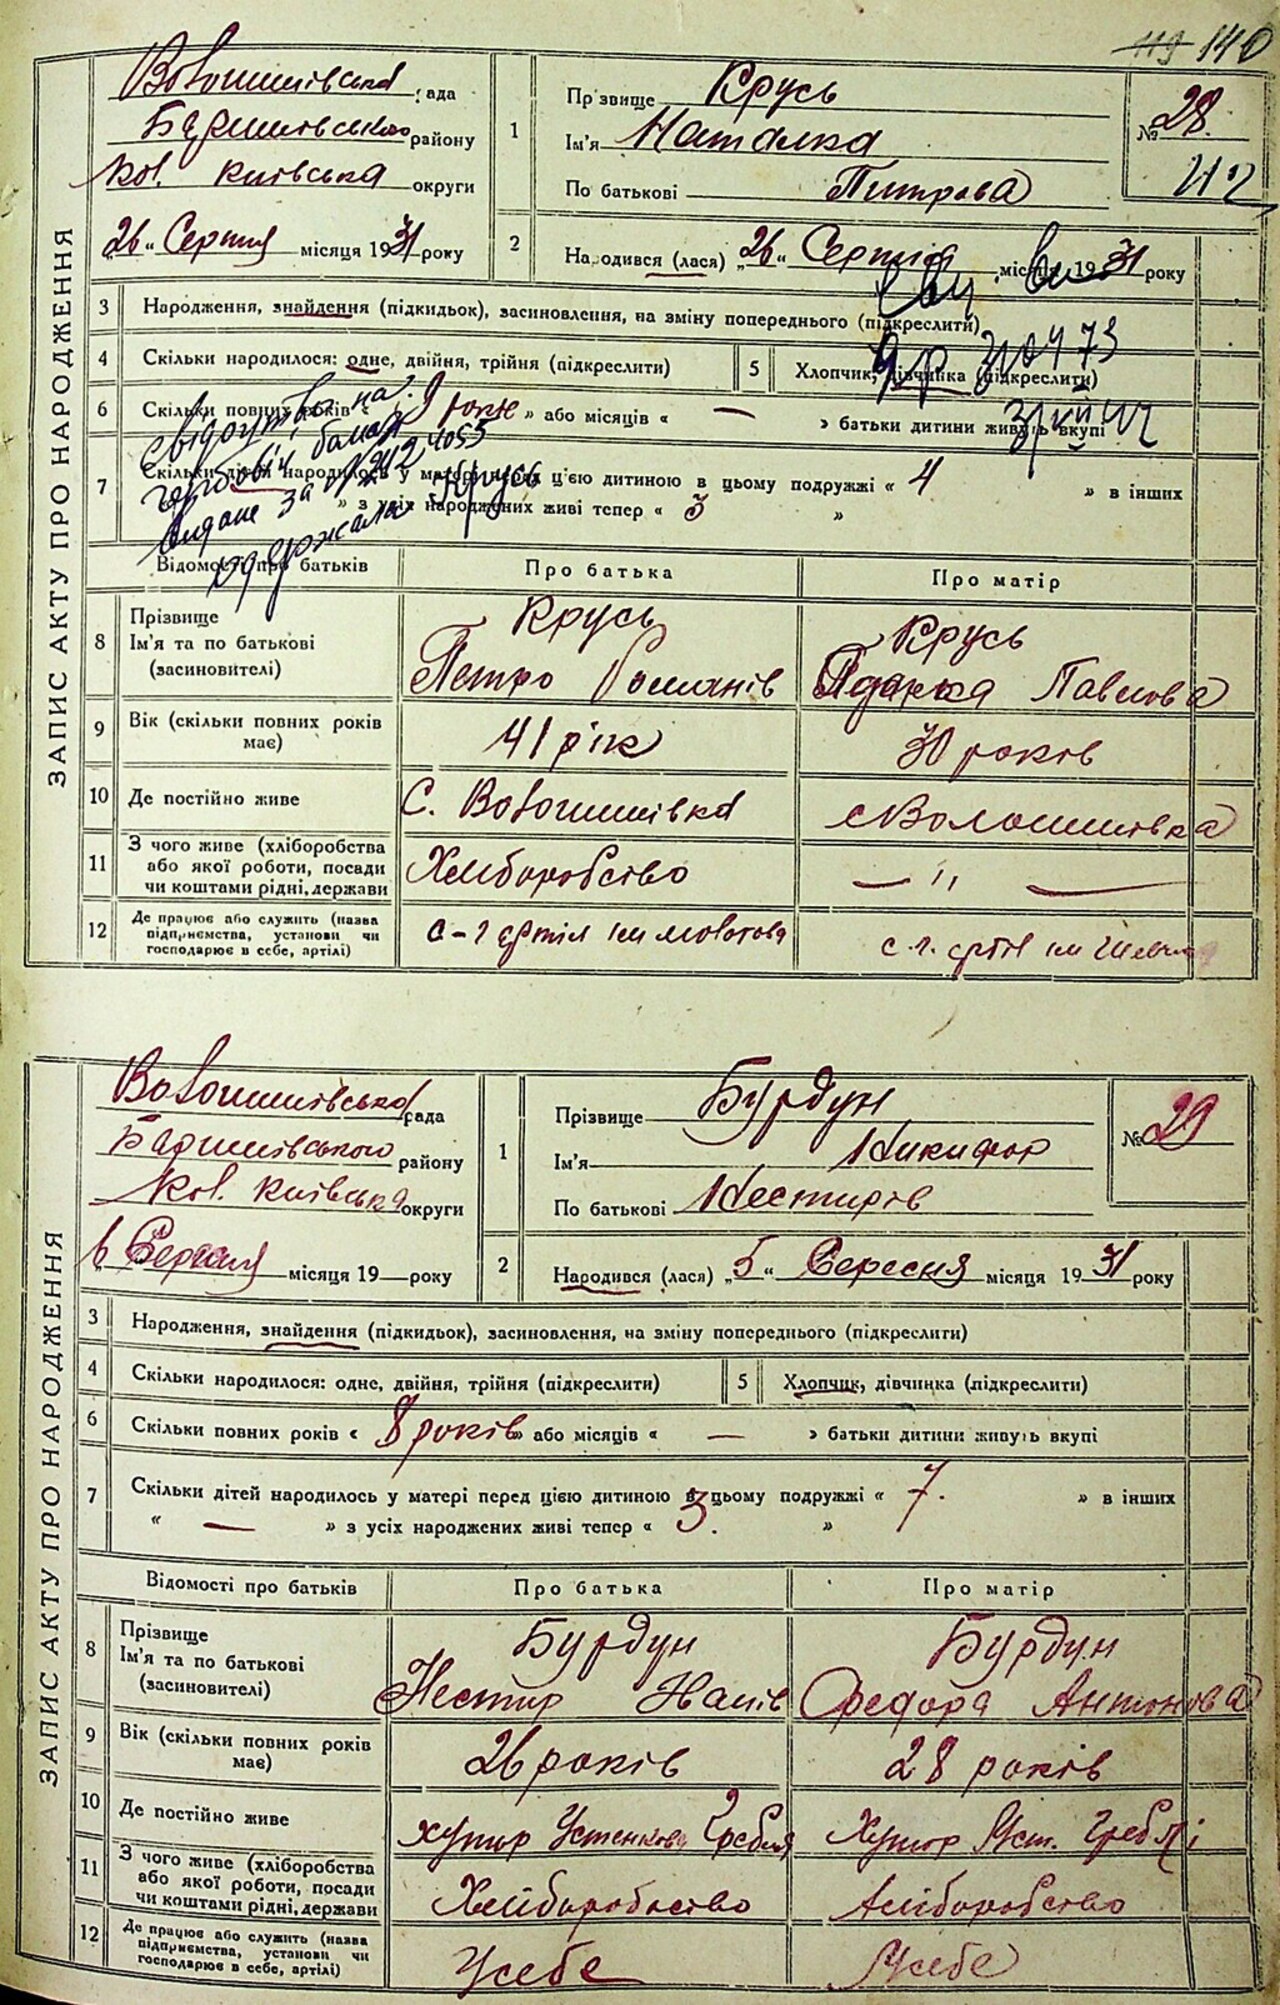 119 140
ЗАПИС АКТУ ПРО НАРОДЖЕННЯ
Волошинівська рада
Баришівського району
кол. Київська округи
„26“ Серпня місяця 1931 року
1
Прізвище Крусь
Ім'я Наталка
По батькові Питрова
№ 28.
2
Народився (лася) „26“ Серпня місяця 1931 року
3 Народження, знайдення (підкидьок), засиновлення, на зміну попереднього (підкреслити)
4 Скільки народилося: одне, двійня, трійня (підкреслити)
5 Хлопчик, дівчинка (підкреслити)
6 Скільки повних років « 9 років » або місяців « — » батьки дитини живуть вкупі
7 Скільки дітей народилось у матері перед цією дитиною в цьому подружжі « 4 » в інших
» з усіх народжених живі тепер « 3 »
видане за №
одержала Крусь
Відомості про батьків
Про батька
Про матір
8 Прізвище
Ім'я та по батькові
(засиновителі)
Крусь
Петро Романів
Крусь
Одарка Павлова
9 Вік (скільки повних років має)
41 рік
30 років
10 Де постійно живе
С. Волошинівка
с Волошинівка
11 З чого живе (хліборобства
або якої роботи, посади
чи коштами рідні, держави
Хліборобство
— " —
12 Де працює або служить (назва
підприємства, установи чи
господарює в себе, артілі)
с-г артіл ім молотова
с. г. артіл ім
ЗАПИС АКТУ ПРО НАРОДЖЕННЯ
Волошинівська рада
Баришівського району
кол. Київська округи
6 Вересня місяця 19— року
1
Прізвище Бурдун
Ім'я Никифор
По батькові Нестирів
№ 29
2
Народився (лася) „5“ Вересня місяця 1931 року
3 Народження, знайдення (підкидьок), засиновлення, на зміну попереднього (підкреслити)
4 Скільки народилося: одне, двійня, трійня (підкреслити)
5 Хлопчик, дівчинка (підкреслити)
6 Скільки повних років « 8 років » або місяців « — » батьки дитини живуть вкупі
7 Скільки дітей народилось у матері перед цією дитиною в цьому подружжі « 7. » в інших
« — » з усіх народжених живі тепер « 3. »
Відомості про батьків
Про батька
Про матір
8 Прізвище
Ім'я та по батькові
(засиновителі)
Бурдун
Нестир
Бурдун
Федора Антонова
9 Вік (скільки повних років має)
26 років
28 років
10 Де постійно живе
хутор Устенкова Гребля
Хутор Уст. Греблі
11 З чого живе (хліборобства
або якої роботи, посади
чи коштами рідні, держави
Хліборобство
Хліборобство
12 Де працює або служить (назва
підприємства, установи чи
господарює в себе, артілі)
Усебе
Усебе